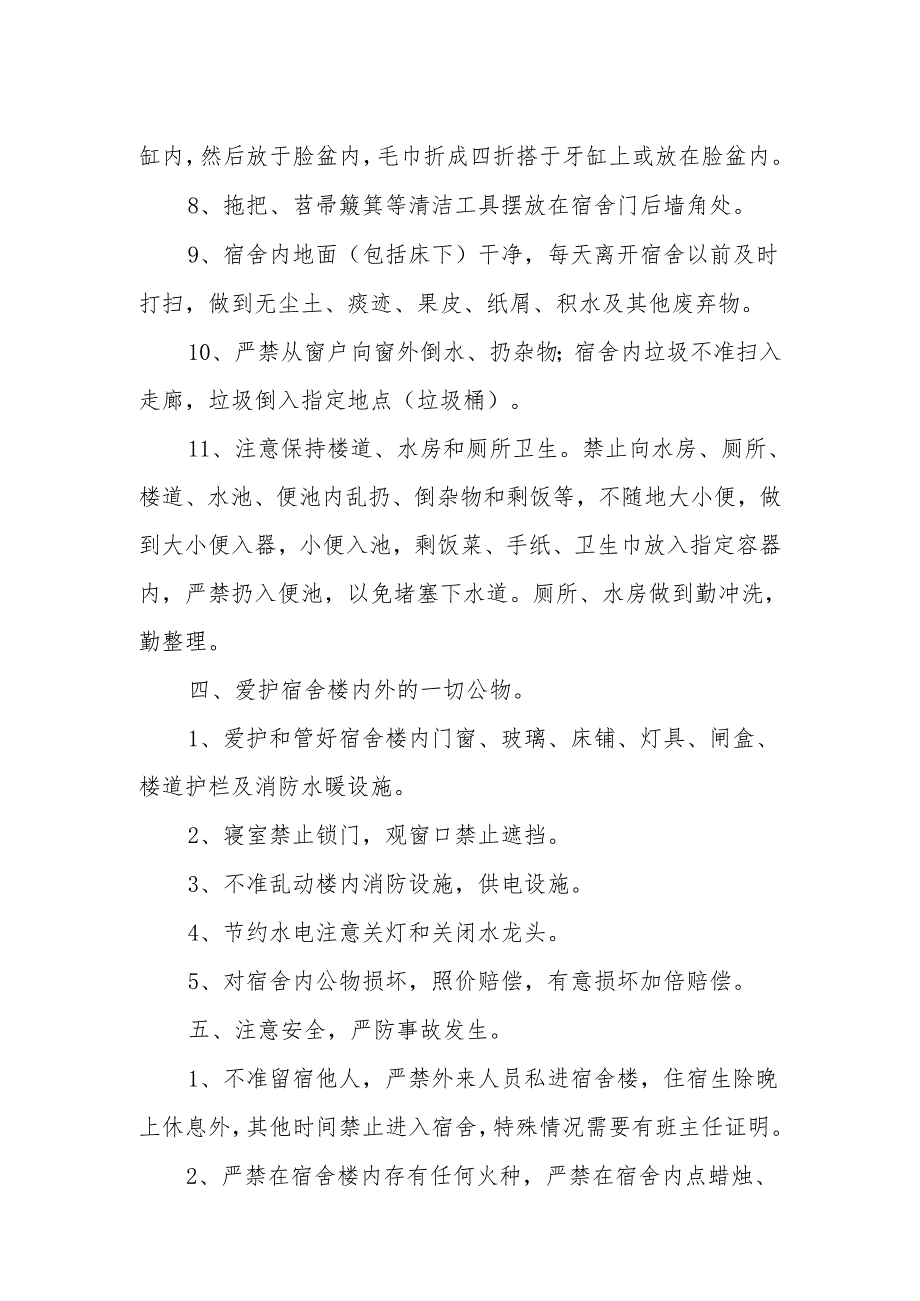 缸内,然后放于脸盆内,毛巾折成四折搭于牙缸上或放在脸盆内。
8、拖把、苕帚簸箕等清洁工具摆放在宿舍门后墙角处。
9、宿舍内地面（包括床下）干净，每天离开宿舍以前及时
打扫，做到无尘土、痰迹、果皮、纸屑、积水及其他废弃物。
10、严禁从窗户向窗外倒水、扔杂物；宿舍内垃圾不准扫入
走廊，垃圾倒入指定地点（垃圾桶）。
11、注意保持楼道、水房和厕所卫生。禁止向水房、厕所、
楼道、水池、便池内乱扔、倒杂物和剩饭等，不随地大小便，做
到大小便入器，小便入池，剩饭菜、手纸、卫生巾放入指定容器
内，严禁扔入便池，以免堵塞下水道。厕所、水房做到勤冲洗，
勤整理。
四、爱护宿舍楼内外的一切公物。
1、爱护和管好宿舍楼内门窗、玻璃、床铺、灯具、闸盒、
楼道护栏及消防水暖设施。
2、寝室禁止锁门，观窗口禁止遮挡。
3、不准乱动楼内消防设施，供电设施。
4、节约水电注意关灯和关闭水龙头。
5、对宿舍内公物损坏，照价赔偿，有意损坏加倍赔偿。
五、注意安全，严防事故发生。
1、不准留宿他人，严禁外来人员私进宿舍楼，住宿生除晚
上休息外,其他时间禁止进入宿舍,特殊情况需要有班主任证明。
2、严禁在宿舍楼内存有任何火种，严禁在宿舍内点蜡烛、